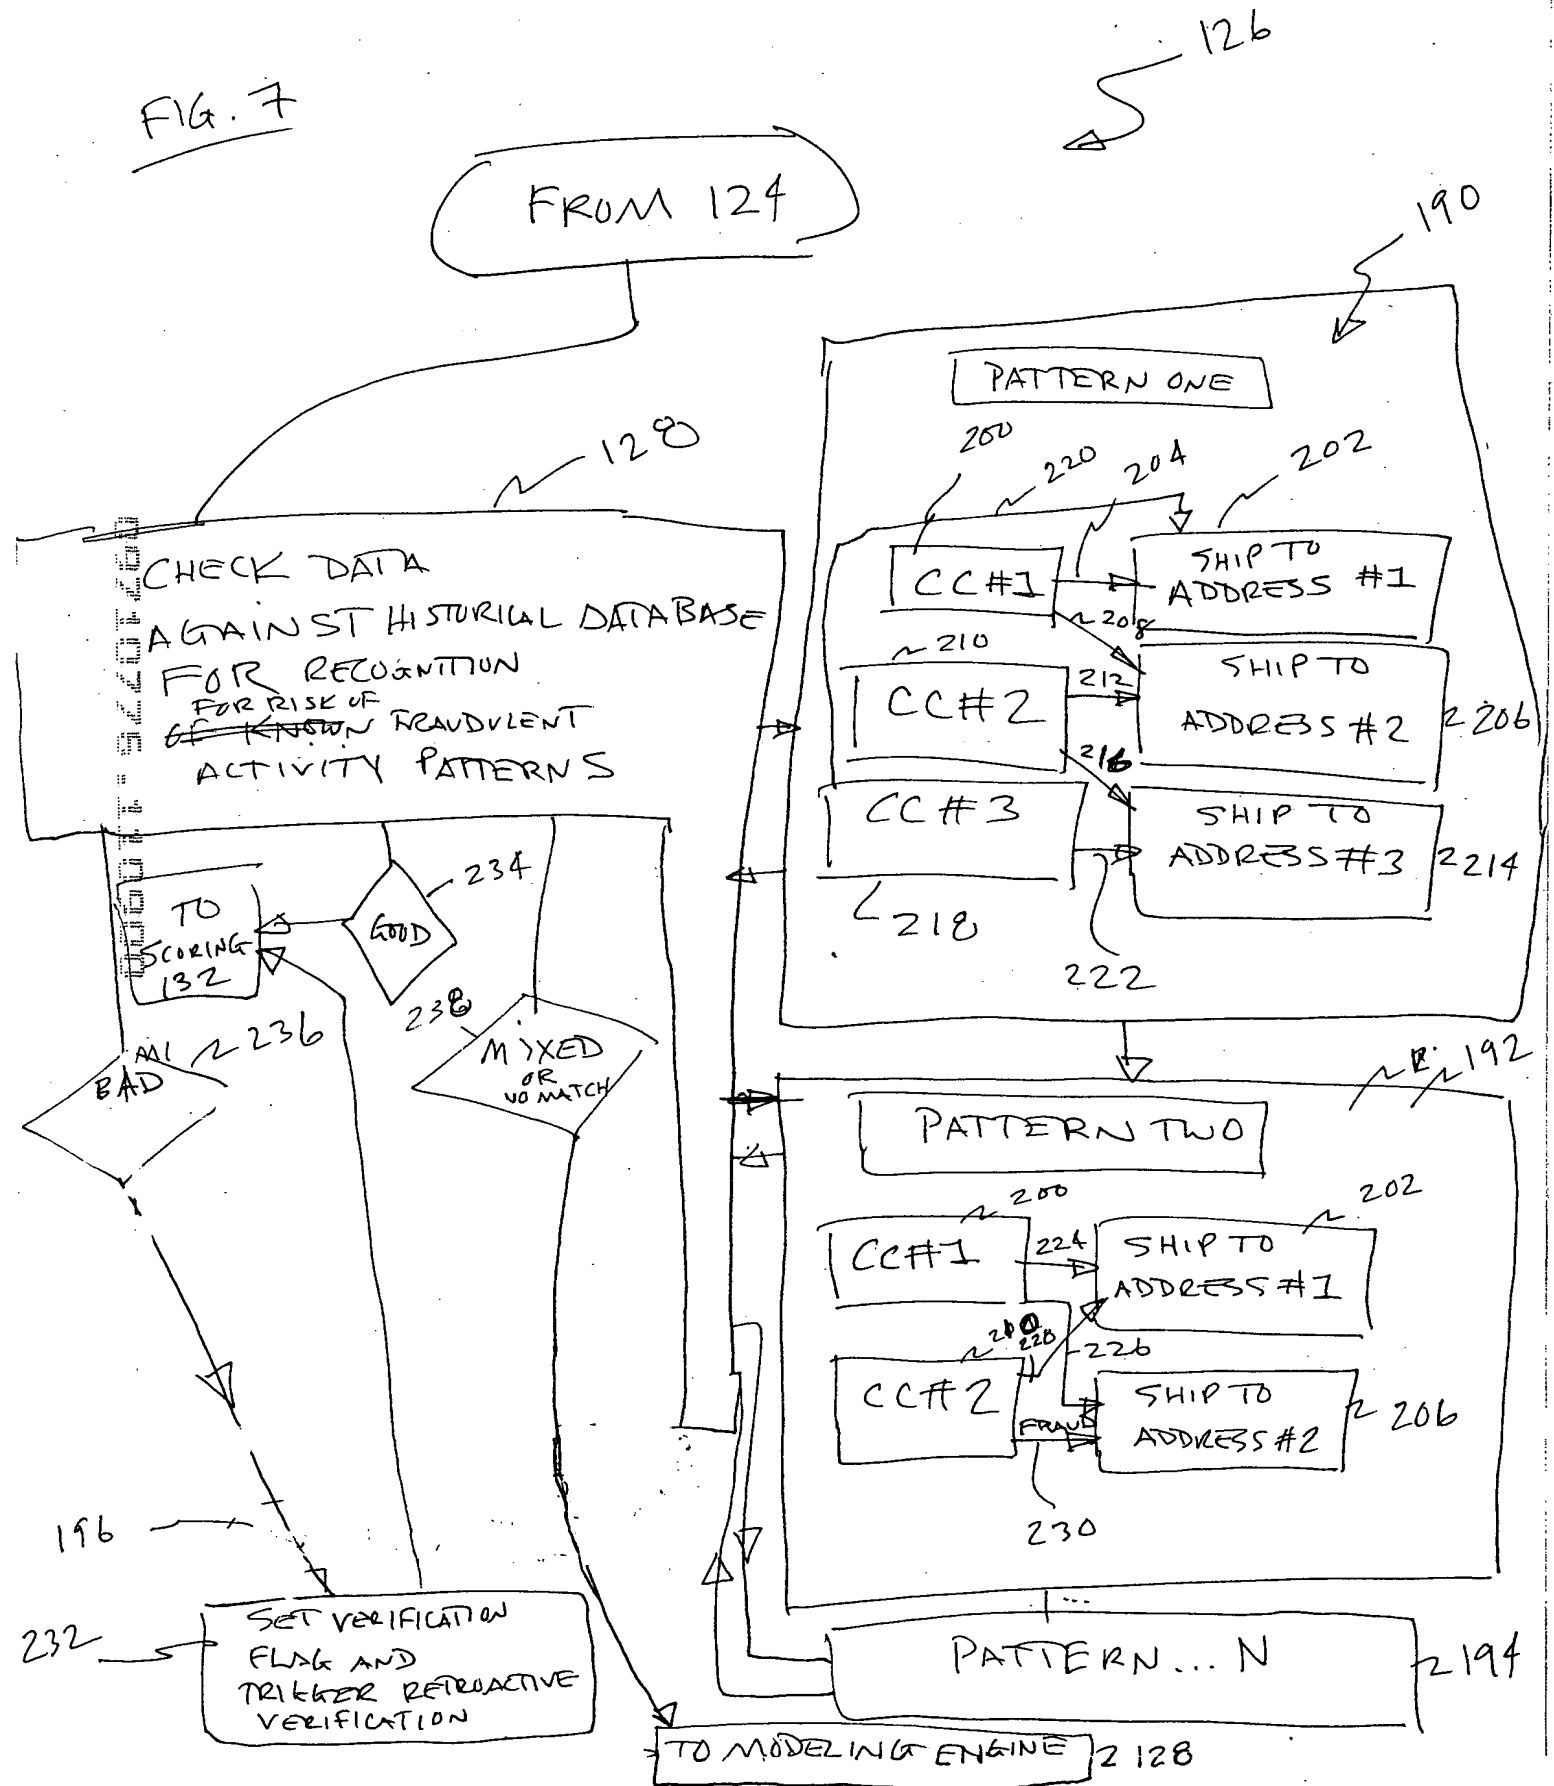 FIG. 7
126
FROM 124
190
PATTERN ONE
128
200
220
204
202
CHECK DATA
AGAINST HISTORICAL DATABASE
FOR RECOGNITION
FOR RISK OF
OF KNOWN FRAUDULENT
ACTIVITY PATTERNS
CC#1
SHIP TO
ADDRESS #1
208
210
CC#2
212
SHIP TO
ADDRESS #2
206
216
CC#3
SHIP TO
ADDRESS #3
214
218
222
TO
SCORING
132
GOOD
234
236
BAD
238
MIXED
OR
NO MATCH
192
PATTERN TWO
200
202
CC#1
224
SHIP TO
ADDRESS #1
228
226
CC#2
FRAUD
SHIP TO
ADDRESS #2
206
230
196
232
SET VERIFICATION
FLAG AND
TRIGGER RETROACTIVE
VERIFICATION
...
PATTERN... N
194
TO MODELING ENGINE
128